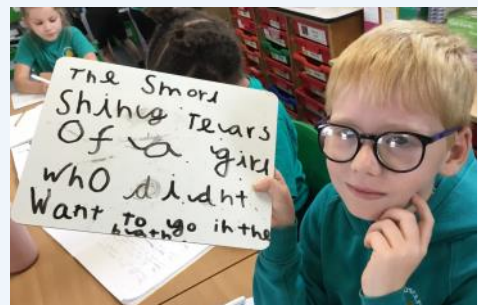 The Smorl
Shiny Tears
Of a girl
who didnt
Want to go in the
bath